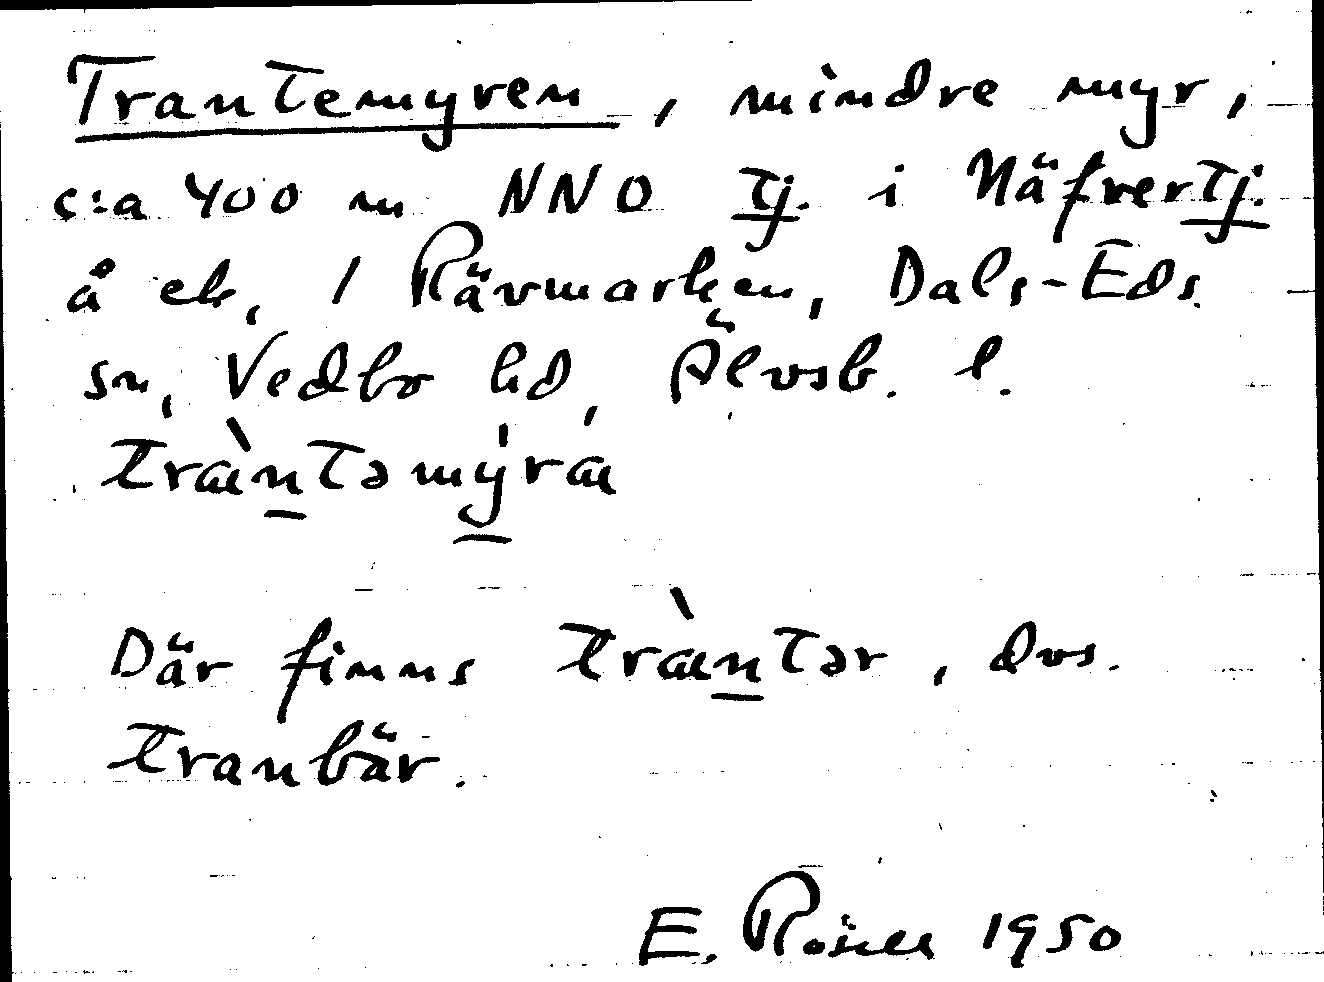 Trantemyren, mindre myr,
c:a 400 m NNO tj. i Näfvertj.
å ek, 1 Rävmarken, Dals-Eds
sn, Vedbo hd, Älvsb. l.
træ̀ntəmy̍ræ
Där finns træ̀ntər, dvs.
tranbär.
E. 1950